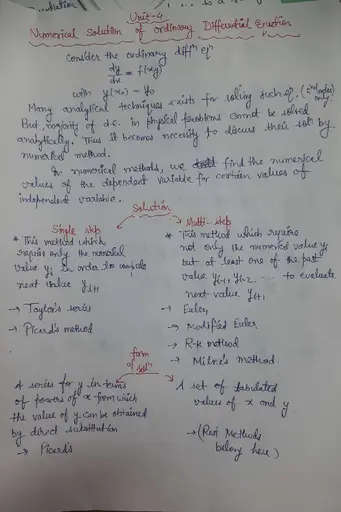 Unit-4
Numerical Solution of ordinary Differential Equation
Consider the ordinary diffⁿ eqⁿ
dy/dx = f(x,y)
with y(x₀) = y₀
Many analytical techniques exists for solving such eqⁿ.
only.
But, majority of d.e. in physical problems cannot be solved
analytically. Thus it becomes necessity to discuss their solⁿ by
numerical method.
In numerical methods, we find the numerical
values of the dependent variable for certain values of
independent variable.
Solution
Single step
* This method which
require only the numerical
value yᵢ in order to compute
next value yᵢ₊₁
→ Taylor's series
→ Picard's method
Multi-step
* This method which require
not only the numerical value yᵢ
but at least one of the past
value yᵢ₋₁, yᵢ₋₂, .... to evaluate
next value yᵢ₊₁
→ Euler,
→ Modified Euler
→ R-K method
→ Milne's method.
form
of
solⁿ
A series for y in terms
of powers of x from which
the value of y can be obtained
by direct substitution
→ Picard's
A set of tabulated
values of x and y
→ (Rest Methods
belong here)